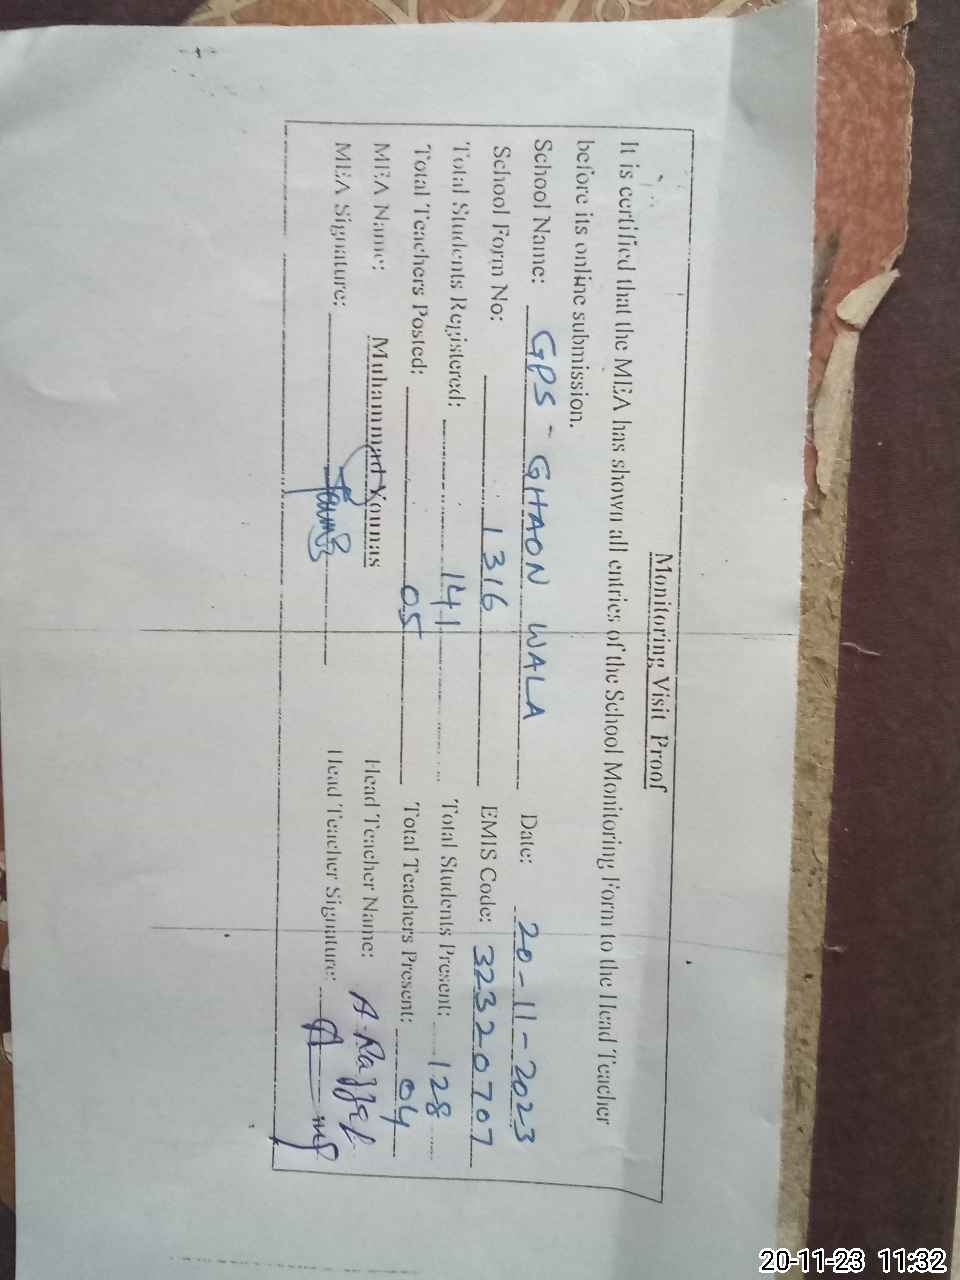 Monitoring Visit Proof
It is certified that the MEA has shown all entries of the School Monitoring Form to the Head Teacher
before its online submission.
School Name: GPS - GHAON WALA Date: 20-11-2023
School Form No: 1316 EMIS Code: 32320707
Total Students Registered: 141 Total Students Present: 128
Total Teachers Posted: 05 Total Teachers Present: 04
MEA Name: Muhammad Younas Head Teacher Name: A. Razzaq
MEA Signature: Head Teacher Signature:
20-11-23 11:32